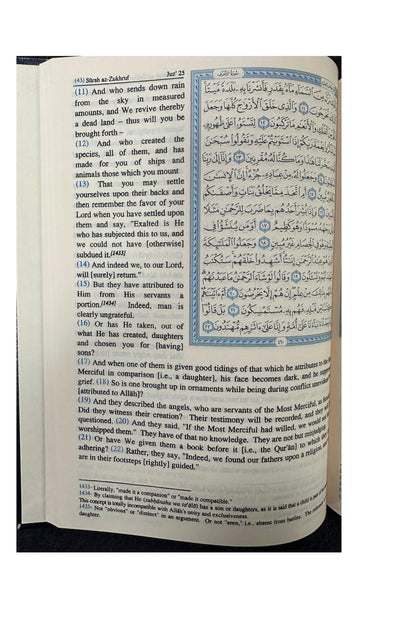 (43) Sūrah az-Zukhruf Juz' 25
(11) And who sends down rain
from the sky in measured
amounts, and We revive thereby
a dead land – thus will you be
brought forth –
(12) And who created the
species, all of them, and has
made for you of ships and
animals those which you mount
(13) That you may settle
yourselves upon their backs and
then remember the favor of your
Lord when you have settled upon
them and say, "Exalted is He
who has subjected this to us, and
we could not have [otherwise]
subdued it.[1433]
(14) And indeed we, to our Lord,
will [surely] return."
(15) But they have attributed to
Him from His servants a
portion.[1434] Indeed, man is
clearly ungrateful.
(16) Or has He taken, out of
what He has created, daughters
and chosen you for [having]
sons?
سُورَةُ الزُّخْرُفِ
السَّمَاءِ مَاءً بِقَدَرٍ فَأَنشَرْنَا بِهِ بَلْدَةً مَّيْتًا
تُخْرَجُونَ ١١ وَالَّذِي خَلَقَ الْأَزْوَاجَ كُلَّهَا وَجَعَلَ
مَا تَرْكَبُونَ ١٢ لِتَسْتَوُوا عَلَىٰ ظُهُورِهِ
إِذَا اسْتَوَيْتُمْ عَلَيْهِ وَتَقُولُوا سُبْحَانَ
وَمَا كُنَّا لَهُ مُقْرِنِينَ ١٣ وَإِنَّا إِلَىٰ رَبِّنَا
وَجَعَلُوا لَهُ مِنْ عِبَادِهِ جُزْءًا إِنَّ الْإِنسَانَ
أَمِ اتَّخَذَ مِمَّا يَخْلُقُ بَنَاتٍ وَأَصْفَاكُم
بُشِّرَ أَحَدُهُم بِمَا ضَرَبَ لِلرَّحْمَٰنِ مَثَلًا
وَهُوَ كَظِيمٌ ١٧ أَوَمَن يُنَشَّأُ فِي
الْخِصَامِ غَيْرُ مُبِينٍ ١٨
إِنَاثًا أَشَهِدُوا خَلْقَهُمْ سَتُكْتَبُ
١٩ وَقَالُوا لَوْ شَاءَ الرَّحْمَٰنُ مَا عَبَدْنَاهُم
مِنْ عِلْمٍ إِنْ هُمْ إِلَّا يَخْرُصُونَ ٢٠ أَمْ آتَيْنَاهُمْ
فَهُم بِهِ مُسْتَمْسِكُونَ ٢١
آبَاءَنَا عَلَىٰ أُمَّةٍ وَإِنَّا عَلَىٰ آثَارِهِم مُّهْتَدُونَ ٢٢
٤٩٠
(17) And when one of them is given good tidings of that which he attributes to the
Merciful in comparison [i.e., a daughter], his face becomes dark, and he
grief. (18) So is one brought up in ornaments while being during conflict
[attributed to Allāh]?
(19) And they described the angels, who are servants of the Most Merciful, as
Did they witness their creation? Their testimony will be recorded, and they will
questioned. (20) And they said, "If the Most Merciful had willed, we would
worshipped them." They have of that no knowledge. They are not but misjudging.
(21) Or have We given them a book before it [i.e., the Qur'ān] to which they
adhering? (22) Rather, they say, "Indeed, we found our fathers upon a religion,
are in their footsteps [rightly] guided."
1433- Literally, "made it a companion" or "made it compatible."
1434- By claiming that He (subḥānahu wa ta'ālā) has a son or daughters, as it is said that a child is
This concept is totally incompatible with Allāh's unity and exclusiveness.
1435- Not "obvious" or "distinct" in an argument. Or not "seen," i.e., absent from battles. The
daughter.